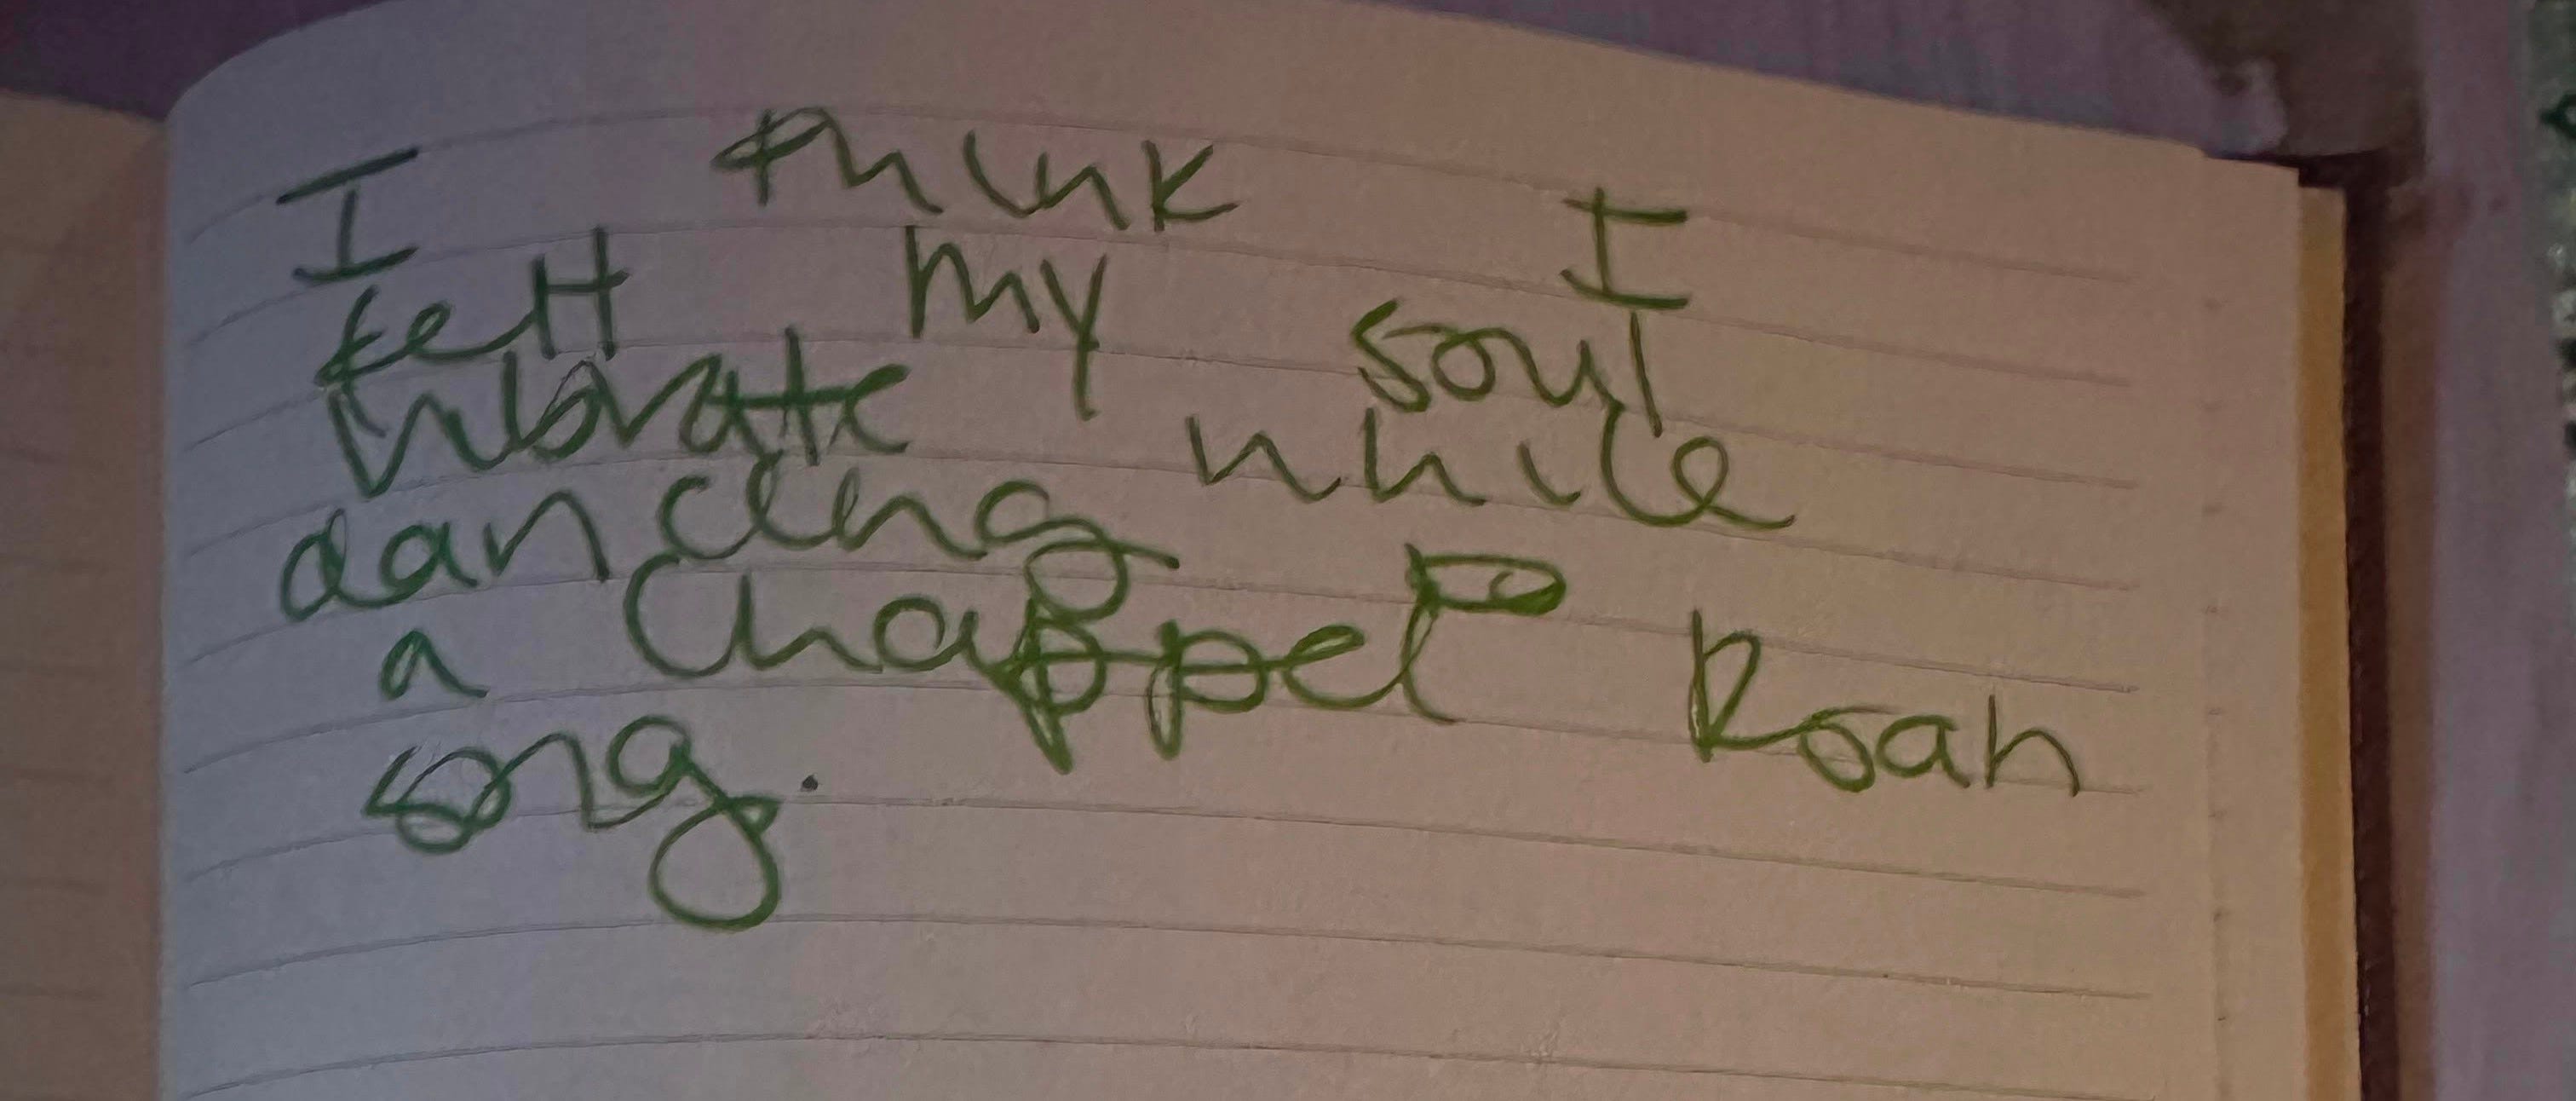 I think I
felt my soul
vibrate while
dancing to
a Chappel Roan
song.